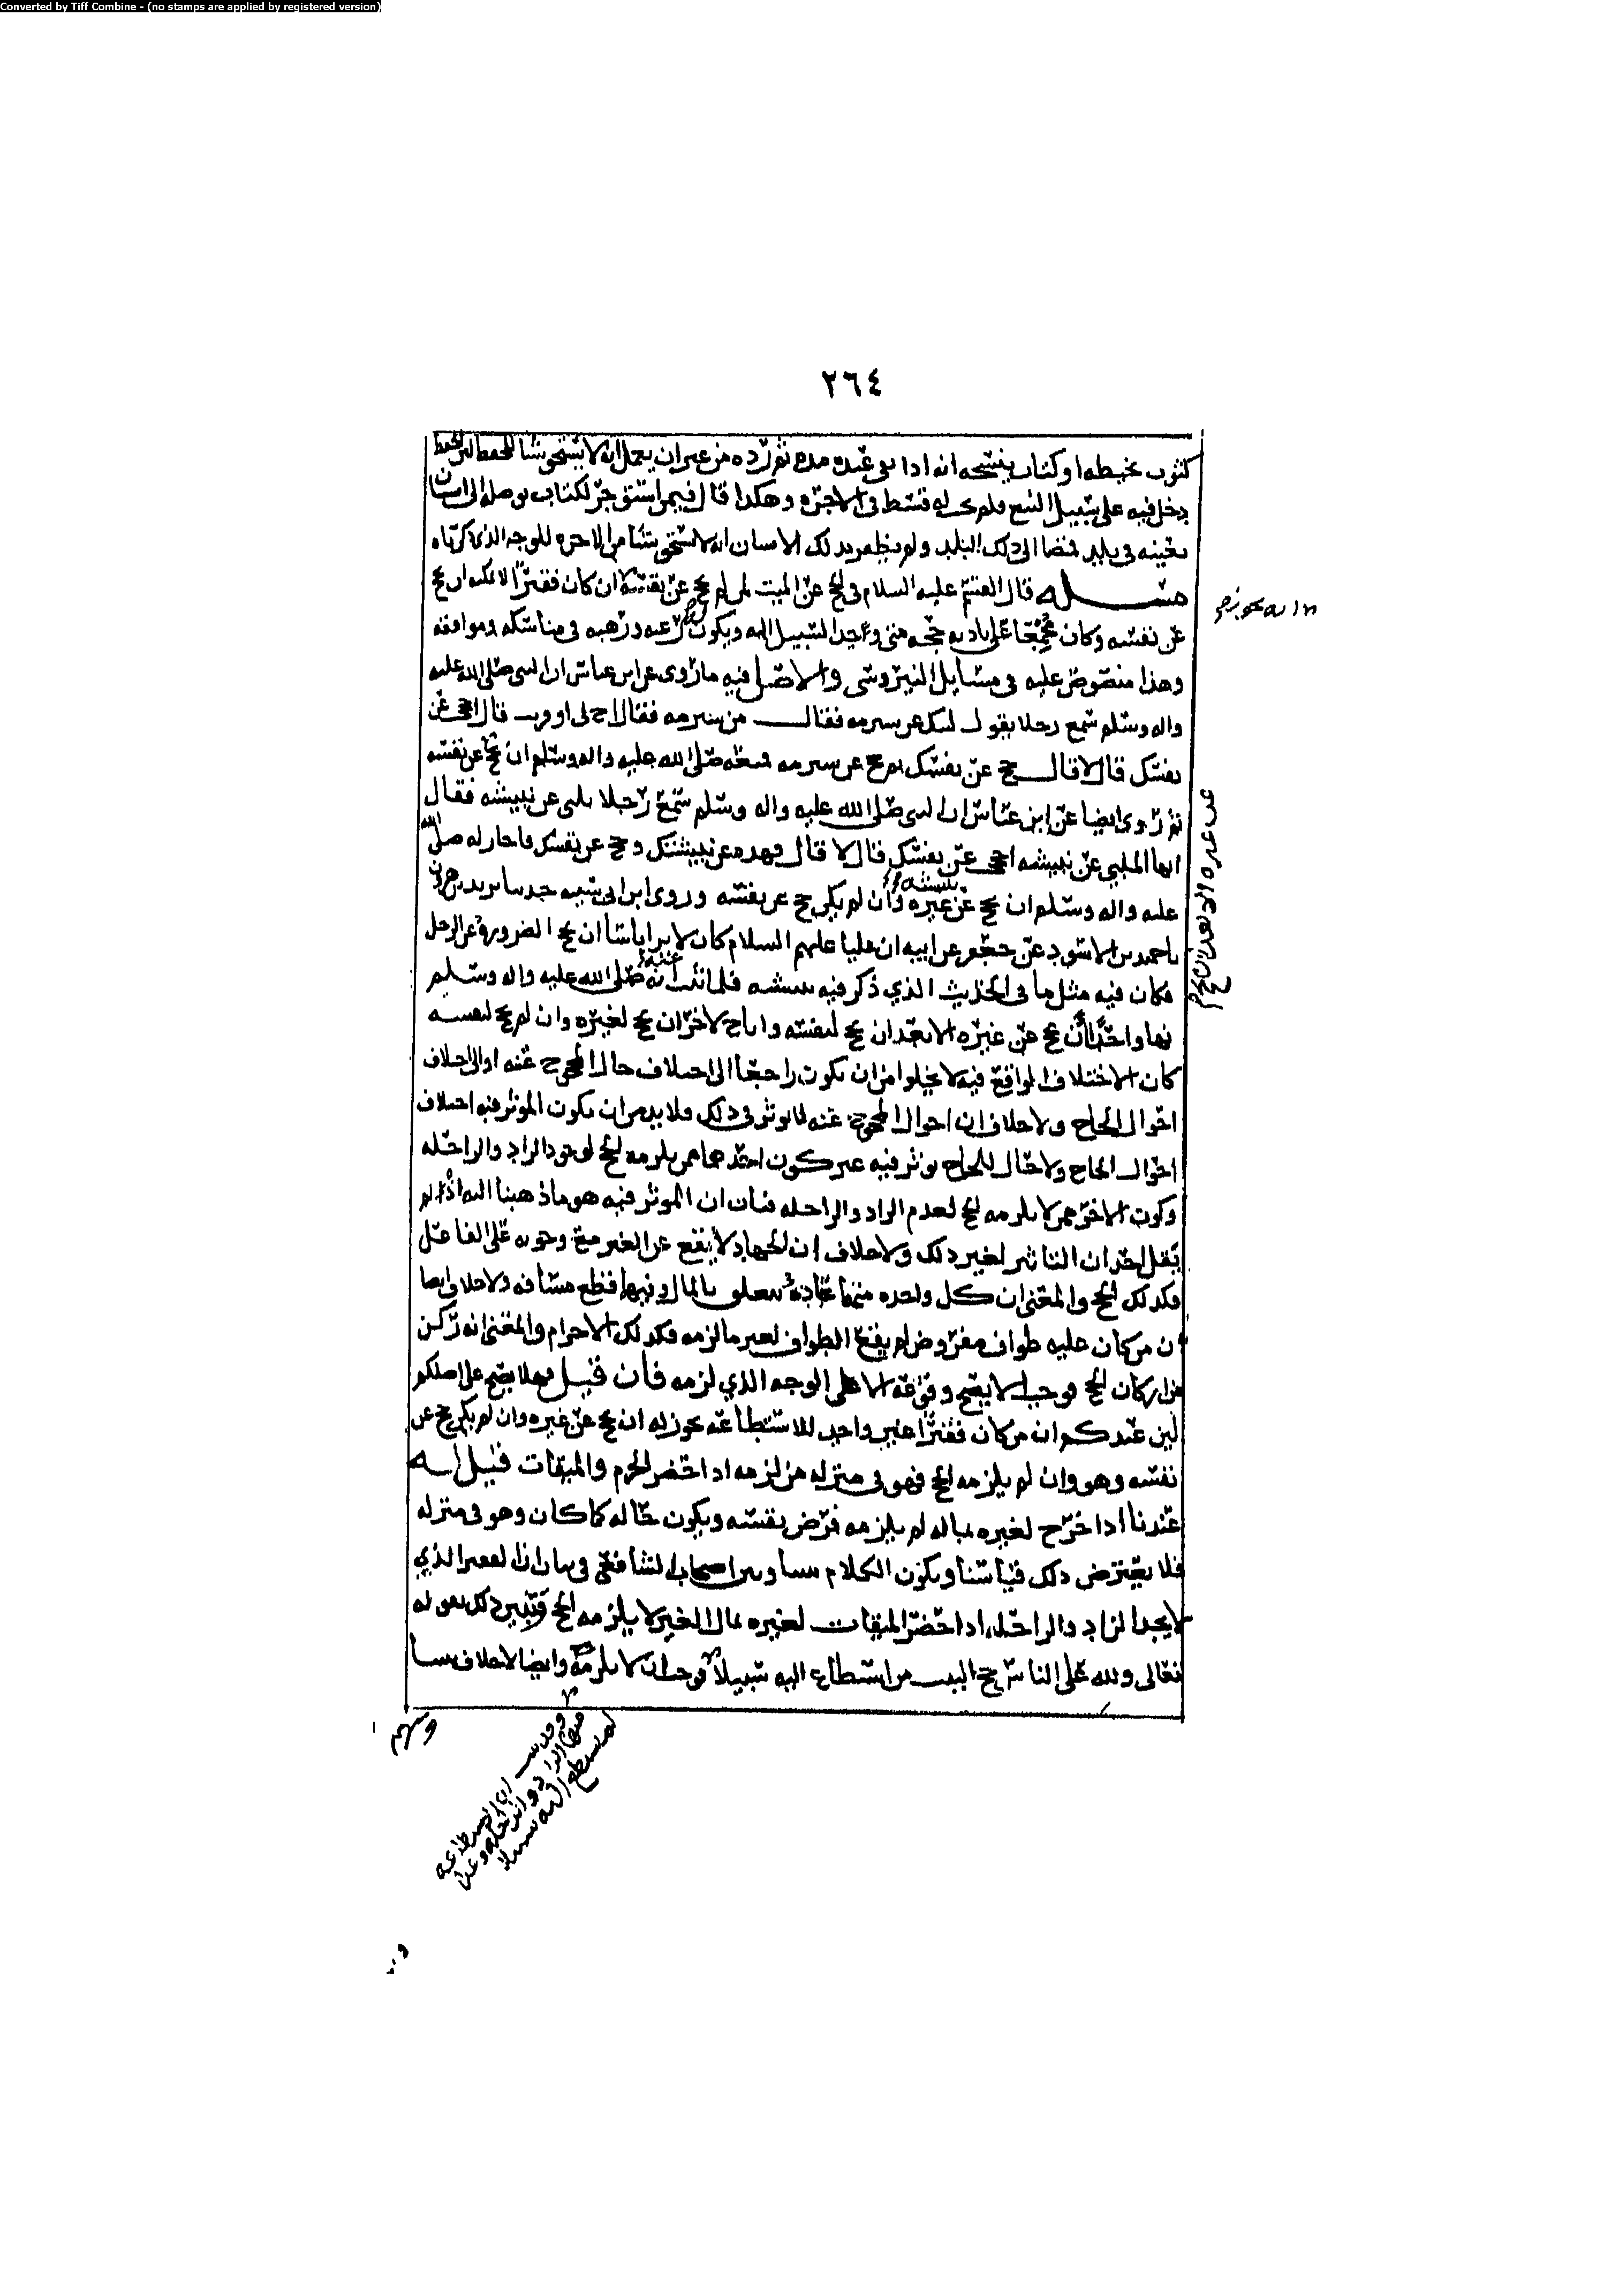 Converted by Tiff Combine - (no stamps are applied by registered version)
٢٦٤
كثوب يخيطه او كتاب ينسخه انه اذا بقي عنده مده ثم رده من غير ان يعمل انه لا يستحق شيا للحفظ لان الحفظ
يدخل فيه على سبيل التبع فلم يكن له قسط في الاجره وهكذا قال فيمن استؤجر لكتاب يوصله الى انسان
بعينه في بلد فمضا الى ذلك البلد ولم يظفر بذلك الانسان انه لا يستحق شيا من الاجره للوجه الذي ذكرناه
مسله قال القسم عليه السلام في الحج عن الميت لمن لم يحج عن نفسه ان كان فقيرا لا يمكنه ان يحج
عن نفسه وكان مجمعا على اداء حجه متى وجد السبيل اليه ويكون ورعه ورهبه في مناسكه ومواقفه
وهذا منصوص عليه في مسايل النيروسي والاصل فيه ما روى عن ابن عباس ان النبي صلى الله عليه
واله وسلم سمع رجلا يقول لبيك عن شبرمه فقال من شبرمه فقال اخ لي او قريب قال احججت عن
نفسك قال لا قال حج عن نفسك ثم حج عن شبرمه فمنعه صلى الله عليه واله وسلم ان يحج عن نفسه
ثم روى ايضا عن ابن عباس ان النبي صلى الله عليه واله وسلم سمع رجلا يلبي عن نبيشه فقال
ايها الملبي عن نبيشه احججت عن نفسك قال لا قال فهذه عن نبيشتك وحج عن نفسك فاجاز له صلى الله
عليه واله وسلم ان يحج عن غيره وان لم يكن حج عن نفسه وروى ابن ابي شيبه حدثنا يزيد بن هرون
نا حميد بن الاسود عن جعفر عن ابيه ان عليا عليهم السلام كان لا يرا باسا ان يحج الصروره عن الرجل
فكان فيه مثل ما في الحديث الذي ذكر فيه نبيشه فلما ثبت عنه انه صلى الله عليه واله وسلم
نها واحدا ان يحج عن غيره الا بعد ان يحج لنفسه واباح لاخر ان يحج لغيره وان لم يحج لنفسه
كان الاختلاف الواقع فيه لا يخلوا من ان يكون راجعا الى اختلاف حال المحجوج عنه او الى اختلاف
احوال الحاج ولا خلاف ان احوال المحجوج عنه لا تؤثر في ذلك فلا بد من ان يكون الموثر فيه اختلاف
احوال الحاج ولا حال للحاج يؤثر فيه غير كون احدهما ممن يلزمه الحج لوجود الزاد والراحله
وكون الاخر ممن لا يلزمه الحج لعدم الزاد والراحله فبان ان الموثر فيه هو ما ذهبنا اليه اذ لم
يقل احد ان التاثير لغير ذلك ولا خلاف ان الجهاد لا يقع عن الغير مع وجوبه على الفاعل
فكذلك الحج والمعنى ان كل واحده منهما عباده تتعلق بالمال وفيها قطع مسافه ولا خلاف ايضا
ان من كان عليه طواف مفروض لم يقع الطواف لغير ما لزمه فكذلك الاحرام والمعنى انه ركن
من اركان الحج فوجب الا يصح وقوعه الا على الوجه الذي لزمه فان قيل فهلا يصح على اصلكم
لان عندكم ان من كان فقيرا غير واجد للاستطاعه يجوز له ان يحج عن غيره وان لم يكن حج عن
نفسه وهو وان لم يلزمه الحج فهو في منزله من لزمه اذا حضر الحرم والميقات قيل له
عندنا اذا خرج لغيره بماله لم يلزمه فرض نفسه ويكون حاله كما كان وهو في منزله
فلا يعترض ذلك قياسنا ويكون الكلام بيننا وبين اصحاب الشافعي في بيان ان الفقير الذي
لا يجد الزاد والراحله اذا حضر الميقات لغيره بمال الغير لا يلزمه الحج وتبين ذلك بقوله
تعالى ولله على الناس حج البيت من استطاع اليه سبيلا فوجب ان لا يلزمه وايضا لا خلاف بيننا